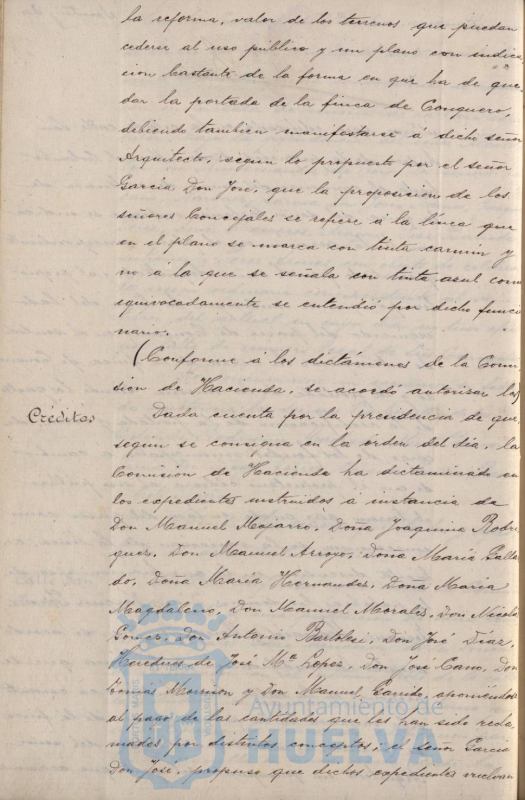 la reforma, valor de los terrenos que puedan
cederse al uso público y un plano con indica
cion bastante de la forma en que ha de que
dar la portada de la finca de Conquero,
debiendo tambien manifestarse á dicho señor
Arquitecto, segun lo propuesto por el señor
García Don José, que la proposicion de los
señores Concejales se refiere á la línea que
en el plano se marca con tinta carmin y
no á la que se señala con tinta azul como
equivocadamente se entendió por dicho funcio
nario.
(Conforme á los dictámenes de la Comi
sion de Hacienda, se acordó autorizar los)
Créditos
Dada cuenta por la presidencia de que,
segun se consigna en la órden del dia, la
Comision de Hacienda ha dictaminado en
los expedientes instruidos á instancia de
Don Manuel Mojarro, Doña Joaquina Rodri
guez, Don Manuel Arroyo, Doña María Galla
do, Doña María Hernandez, Doña María
Magdaleno, Don Manuel Morales, Don Nicolas
Gomez, Don Antonio Bartolesi, Don José Díaz,
Herederos de José Mª Lopez, Don José Cano, Don
Tomas Morrison y Don Manuel Garrido, oponiéndose
al pago de las cantidades que les han sido recla
madas por distintos conceptos; el señor García
Don José, propuso que dichos expedientes vuelvan
Ayuntamiento de
HUELVA